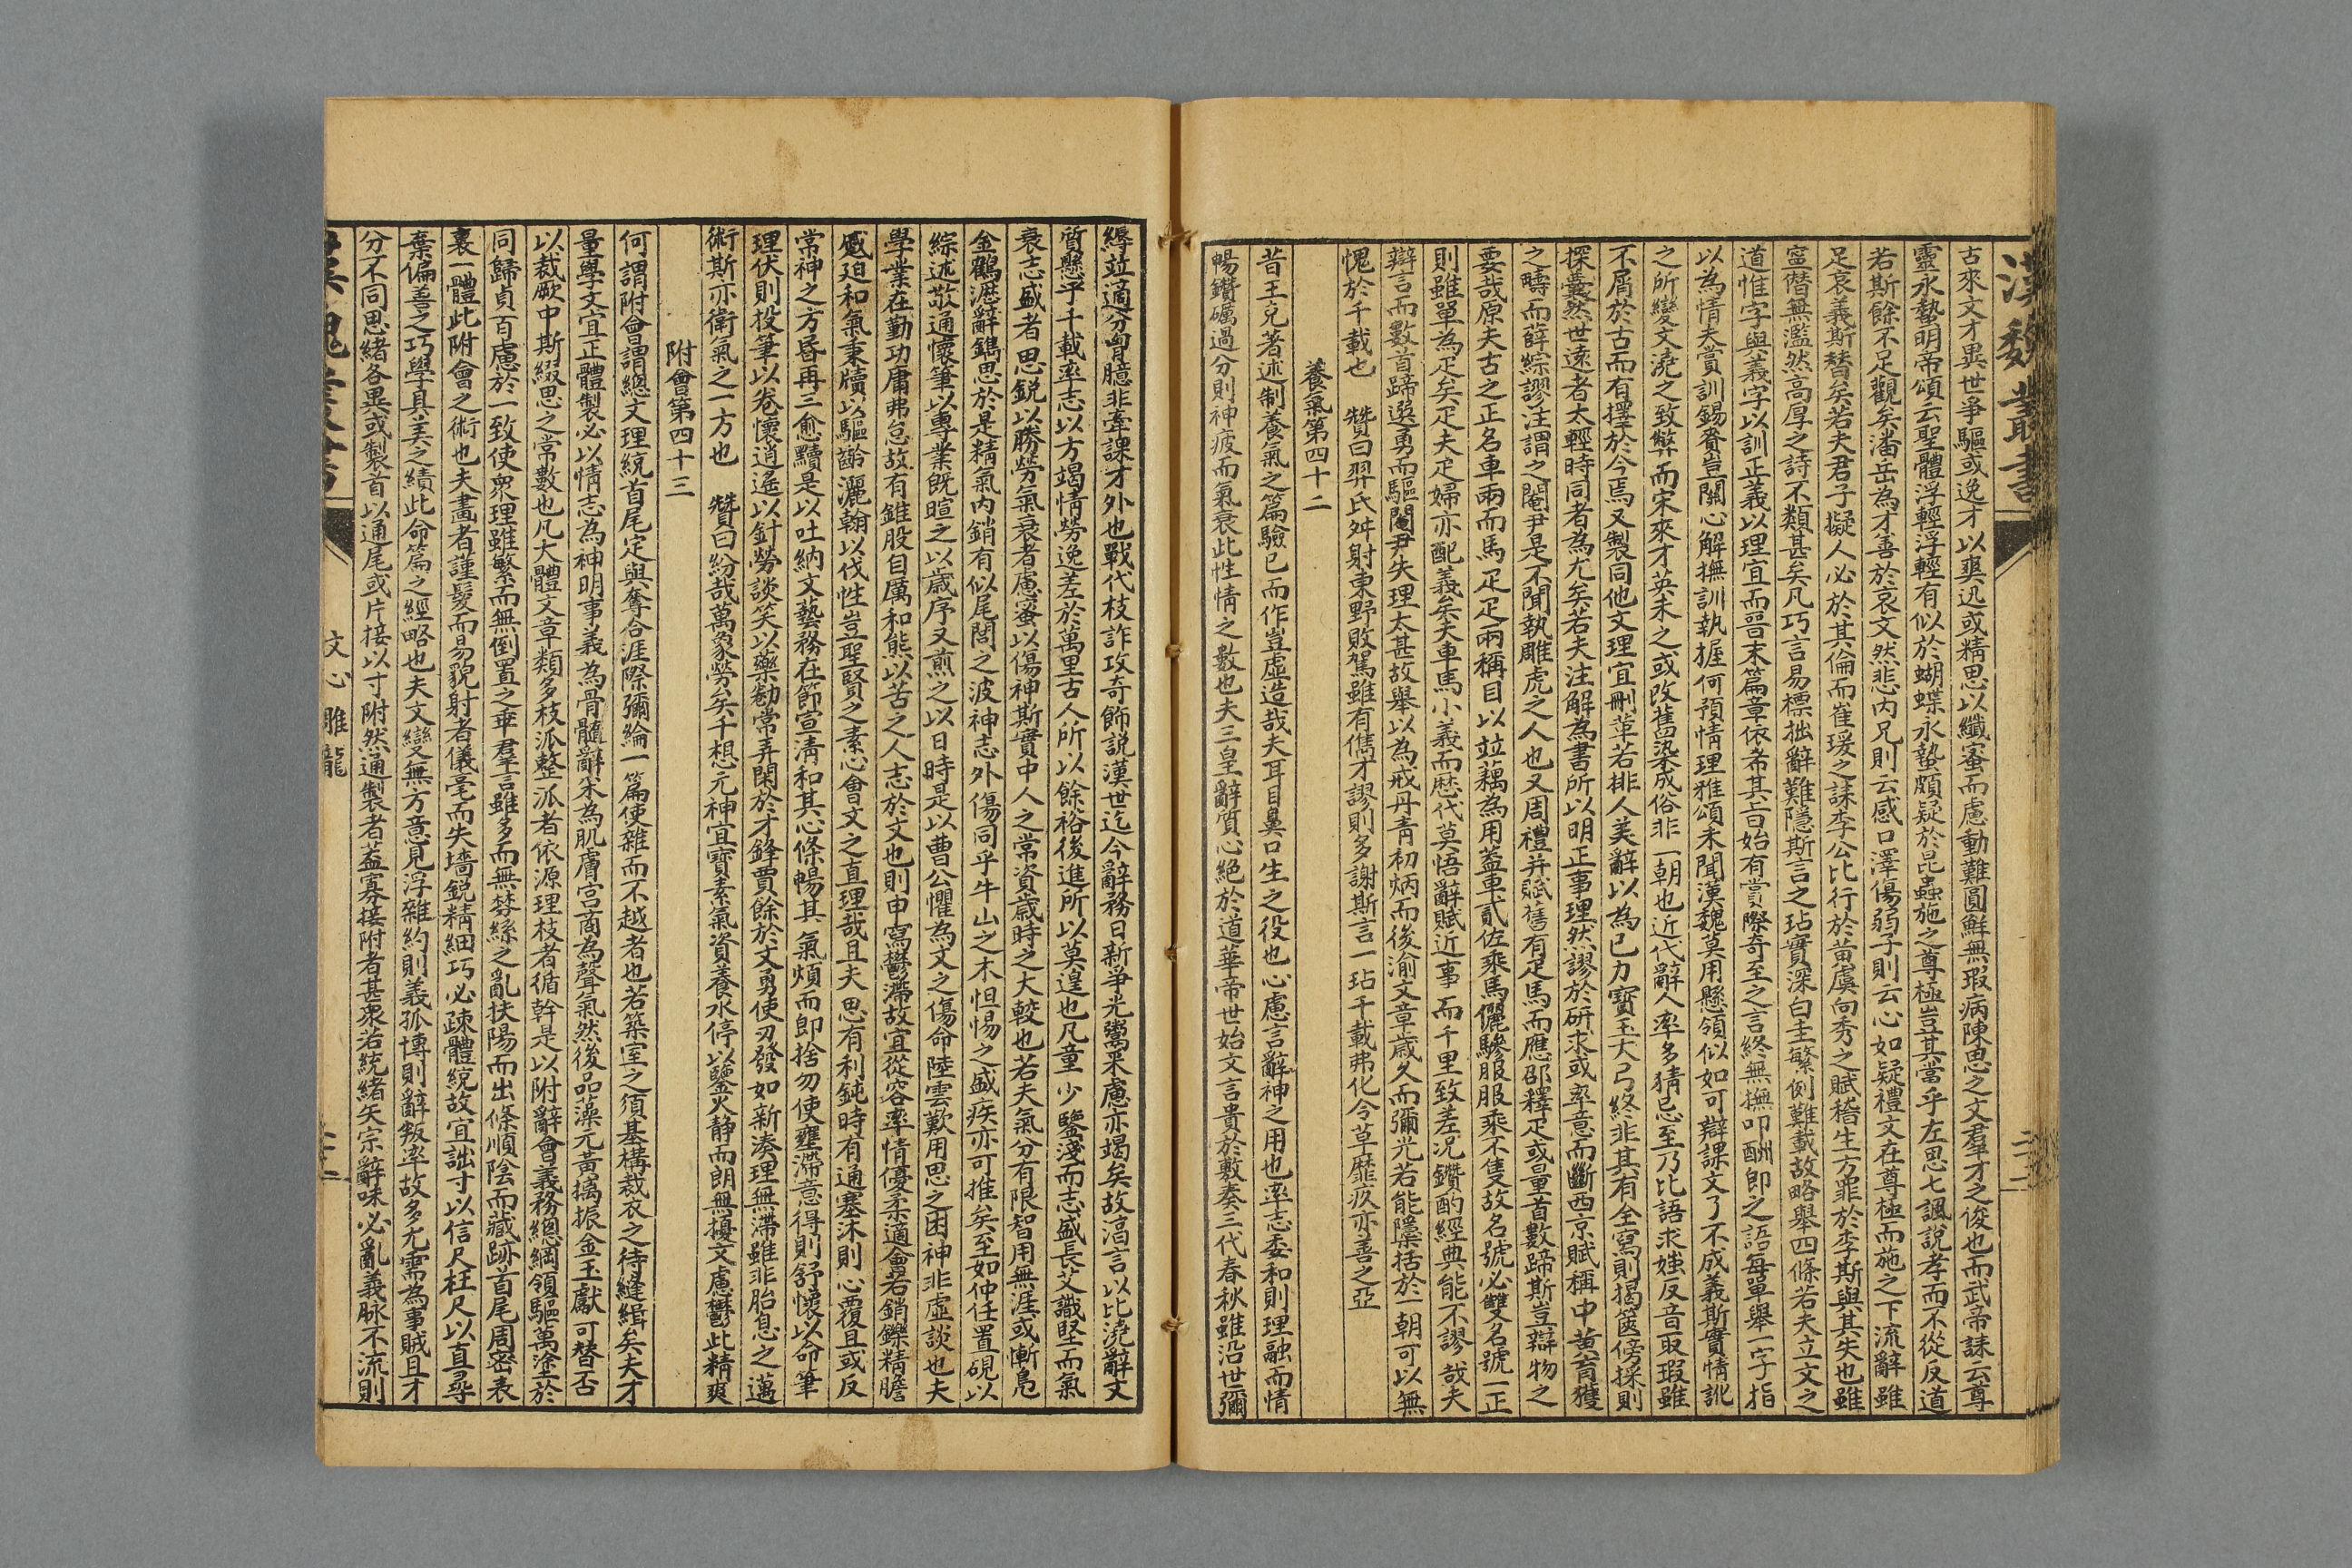 漢魏叢書
古來文才異世爭驅或逸才以爽迅或精思以纖密而慮動難圓鮮無瑕病陳思之文羣才之俊也而武帝誄云尊
靈永蟄明帝頌云聖體浮輕浮輕有似於蝴蝶永蟄頗疑於昆蟲施之尊極豈其當乎左思七諷說孝而不從反道
若斯餘不足觀矣潘岳為才善於哀文然悲內兄則云感口澤傷弱子則云心如疑禮文在尊極而施之下流辭雖
足哀義斯替矣若夫君子擬人必於其倫而崔瑗之誄李公比行於黃虞向秀之賦嵇生方罪於李斯與其失也雖
寧僭無濫然高厚之詩不類甚矣凡巧言易標拙辭難隱斯言之玷實深白圭繁例難載故略舉四條若夫立文之
道惟字與義字以訓正義以理宜而晉末篇章依希其旨始有賞際奇至之言終無撫叩酬即之語每單舉一字指
以為情夫賞訓錫賚豈關心解撫訓執握何預情理雅頌未聞漢魏莫用懸領似如可辯課文了不成義斯實情訛
之所變文澆之致弊而宋來才英未之或改舊染成俗非一朝也近代辭人率多猜忌至乃比語求蚩反音取瑕雖
不屑於古而有擇於今焉又製同他文理宜刪革若排人美辭以為己力寶玉大弓終非其有全寫則揭篋傍採則
探囊然世遠者太輕時同者為尤矣若夫注解為書所以明正事理然謬於研求或率意而斷西京賦稱中黃育獲
之疇而薛綜謬注謂之閹尹是不聞執雕虎之人也又周禮井賦舊有疋馬而應邵釋疋或量首數蹄斯豈辯物之
要哉原夫古之正名車兩而馬疋疋兩稱目以竝耦為用蓋車貳佐乘馬儷驂服服乘不隻故名號必雙名號一正
則雖單為疋矣疋夫疋婦亦配義矣夫車馬小義而歷代莫悟辭賦近事而千里致差況鑽酌經典能不謬哉夫
辯言而數首蹄選勇而驅閹尹失理太甚故舉以為戒丹青初炳而後渝文章歲久而彌光若能隱括於一朝可以無
愧於千載也　贊曰羿氏舛射東野敗駕雖有儁才謬則多謝斯言一玷千載弗化令章靡疚亦善之亞
養氣第四十二
昔王充著述制養氣之篇驗已而作豈虛造哉夫耳目鼻口生之役也心慮言辭神之用也率志委和則理融而情
暢鑽礪過分則神疲而氣衰此性情之數也夫三皇辭質心絕於道華帝世始文言貴於敷奏三代春秋雖沿世彌
縟竝適分胷臆非牽課才外也戰代枝詐攻奇飾說漢世迄今辭務日新爭光鬻采慮亦竭矣故淳言以比澆辭文
質懸乎千載率志以方竭情勞逸差於萬里古人所以餘裕後進所以莫遑也凡童少鑒淺而志盛長艾識堅而氣
衰志盛者思銳以勝勞氣衰者慮密以傷神斯實中人之常資歲時之大較也若夫氣分有限智用無涯或慚鳧
企鶴瀝辭鐫思於是精氣內銷有似尾閭之波神志外傷同乎牛山之木怛惕之盛疾亦可推矣至如仲任置硯以
綜述敬通懷筆以專業既暄之以歲序又煎之以日時是以曹公懼為文之傷命陸雲歎用思之困神非虛談也夫
學業在勤功庸弗怠故有錐股自厲和熊以苦之人志於文也則申寫鬱滯故宜從容率情優柔適會若銷鑠精膽
蹙迫和氣秉牘以驅齡灑翰以伐性豈聖賢之素心會文之直理哉且夫思有利鈍時有通塞沐則心覆且或反
常神之方昏再三愈黷是以吐納文藝務在節宣清和其心條暢其氣煩而即捨勿使壅滯意得則舒懷以命筆
理伏則投筆以卷懷逍遙以針勞談笑以藥勌常弄閑於才鋒賈餘於文勇使刃發如新湊理無滯雖非胎息之邁
術斯亦衛氣之一方也　贊曰紛哉萬象勞矣千想元神宜寶素氣資養水停以鑒火靜而朗無擾文慮鬱此精爽
附會第四十三
何謂附會謂總文理統首尾定與奪合涯際彌綸一篇使雜而不越者也若築室之須基構裁衣之待縫緝矣夫才
量學文宜正體製必以情志為神明事義為骨髓辭采為肌膚宮商為聲氣然後品藻元黃摛振金玉獻可替否
以裁厥中斯綴思之常數也凡大體文章類多枝派整派者依源理枝者循幹是以附辭會義務總綱領驅萬塗於
同歸貞百慮於一致使衆理雖繁而無倒置之乖羣言雖多而無棼絲之亂扶陽而出條順陰而藏跡首尾周密表
裏一體此附會之術也夫畫者謹髮而易貌射者儀毫而失墻銳精細巧必疎體統故宜詘寸以信尺枉尺以直尋
棄偏善之巧學具美之績此命篇之經略也夫文變無方意見浮雜約則義孤博則辭叛率故多尤需為事賊且才
分不同思緒各異或製首以通尾或片接以寸附然通製者蓋寡接附者甚衆若統緒失宗辭味必亂義脉不流則
漢魏叢書
文心雕龍